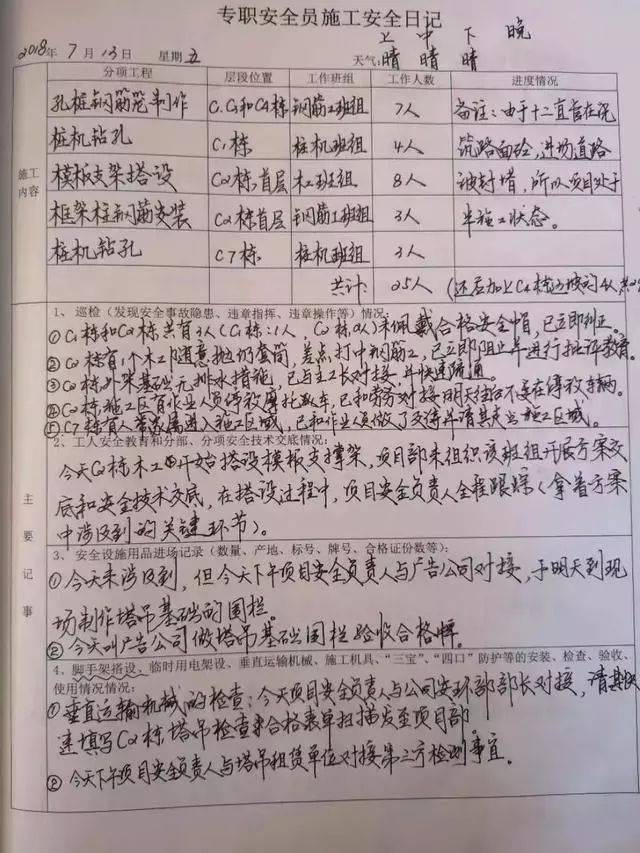 专职安全员施工安全日记
上 中 下 晚
2018年 7月 13日 星期五 天气: 晴 晴 晴
分项工程 层段位置 工作班组 工作人数 进度情况
施工内容
孔桩钢筋笼制作 C1和C4栋 钢筋工班组 7人 备注:由于十二直管在浇
桩机钻孔 C1栋 桩机班组 4人 筑路面砼,进场道路
模板支架搭设 C2栋首层 木工班组 8人 被封堵,所以项目处于
框架柱钢筋安装 C2栋首层 钢筋工班组 3人 半施工状态。
桩机钻孔 C7栋 桩机班组 3人
共计: 25人 (还应加上C4栋边坡的4人
主要记事
1、巡检(发现安全事故隐患、违章指挥、违章操作等)情况:
①C1栋和C2栋共有3人(C1栋:1人,C2栋2人)未佩戴合格安全帽,已立即纠正。
②C2栋有1个木工随意抛扔套筒,差点打中钢筋工,已立即阻止并进行批评教育。
③C2栋外架基础无排水措施,已与主工长对接,并快速疏通。
④C2栋施工区有作业人员停放摩托车,已和劳务对接明天往后不要在停放车辆。
⑤C7栋有人带家属进入施工区域,已和作业人员做了交待并请其走出施工区域。
2、工人安全教育和分部、分项安全技术交底情况:
今天C2栋木工开始搭设模板支撑架,项目部未组织该班组开展方案交
底和安全技术交底,在搭设过程中,项目安全负责人全程跟踪(拿着方案
中涉及到的关键环节)。
3、安全设施用品进场记录(数量、产地、标号、牌号、合格证份数等):
①今天未涉及到,但今天下午项目安全负责人与广告公司对接,于明天到现
场制作塔吊基础的围栏。
②今天叫广告公司做塔吊基础围栏验收合格牌。
4、脚手架搭设、临时用电架设、垂直运输机械、施工机具、“三宝”、“四口”防护等的安装、检查、验收、
使用情况情况:
①垂直运输机械的检查:今天项目安全负责人与公司安环部部长对接,请其快
速填写C2栋塔吊检查合格表单扫描发至项目部。
②今天下午项目安全负责人与塔吊租赁单位对接第三方检测事宜。